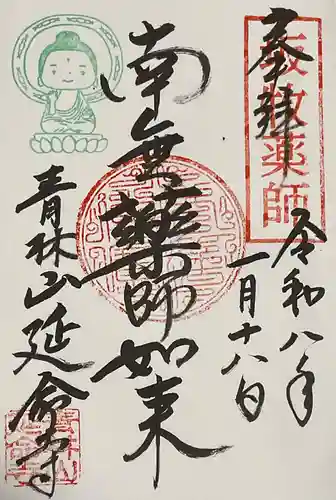 奉拝
板敷薬師
令和八年
一月十八日
南無薬師如来
青林山延命寺